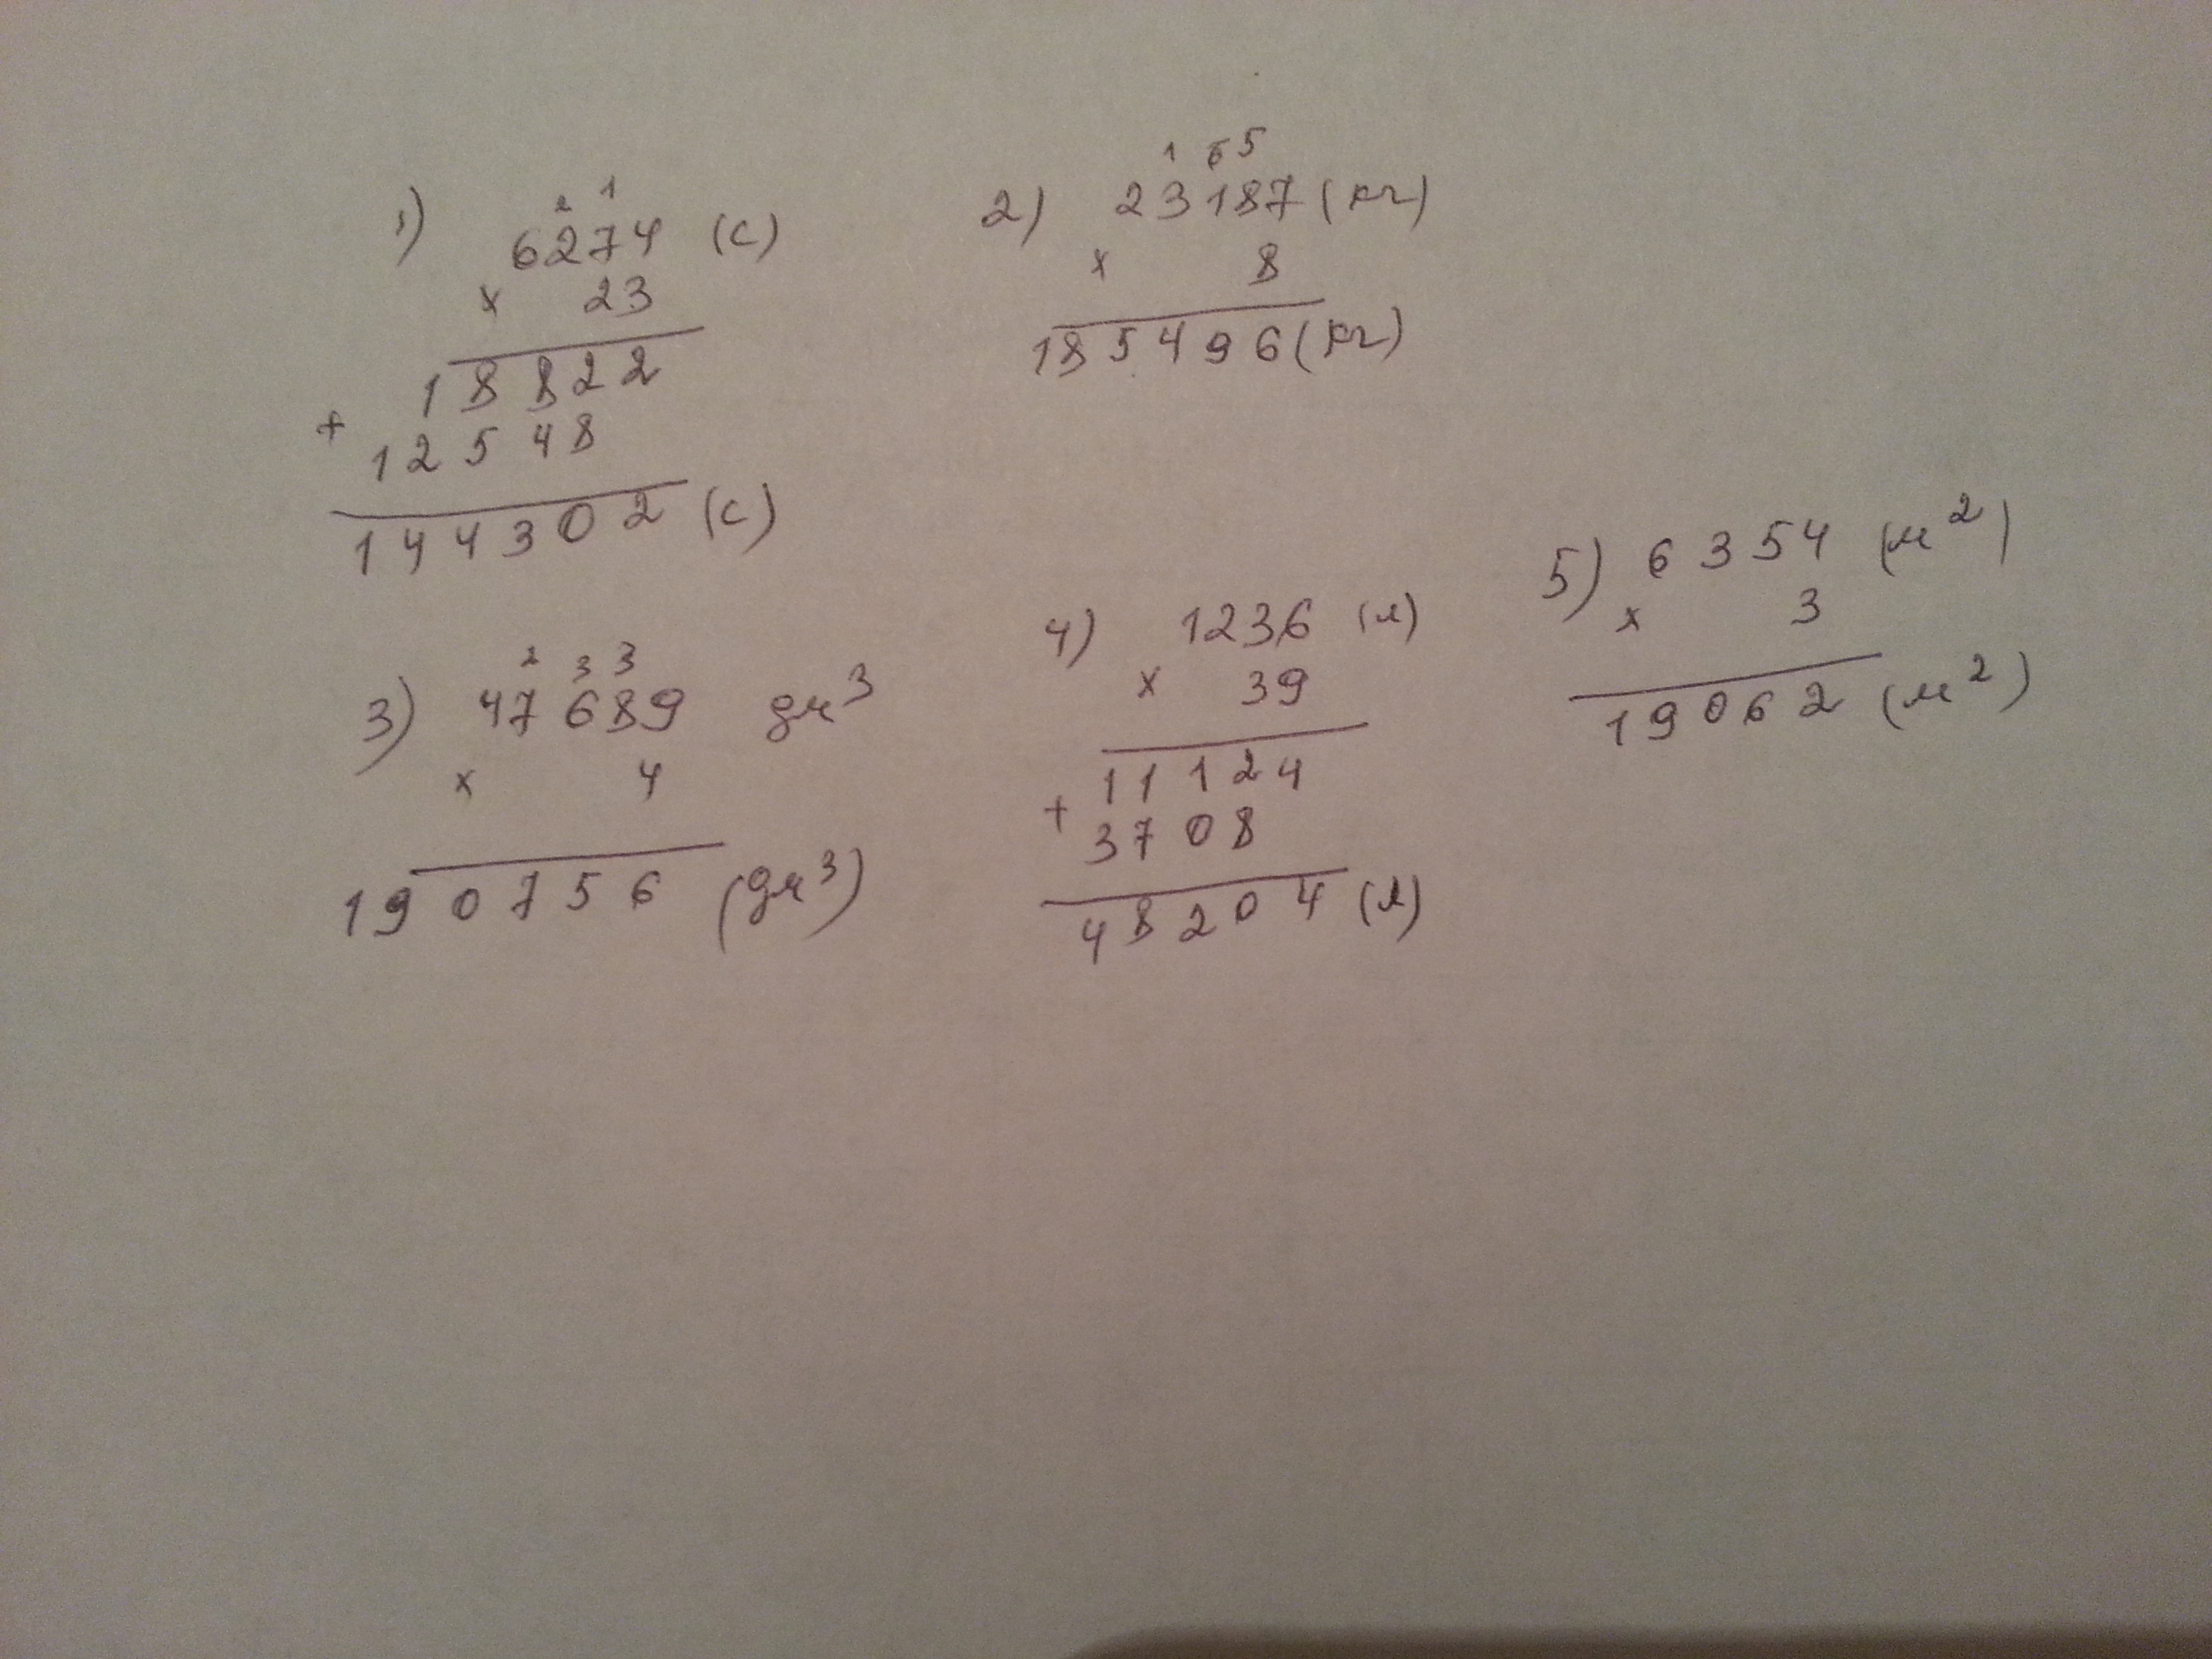 1) 2 1
6274 (с)
x 23
18822
+ 12548
144302 (с)
2) 1 6 5
23187 (кг)
x 8
185496 (кг)
3) 2 3 3
47689 дм³
x 4
190756 (дм³)
4) 1236 (л)
x 39
11124
+ 3708
48204 (л)
5) 6354 (м²)
x 3
19062 (м²)